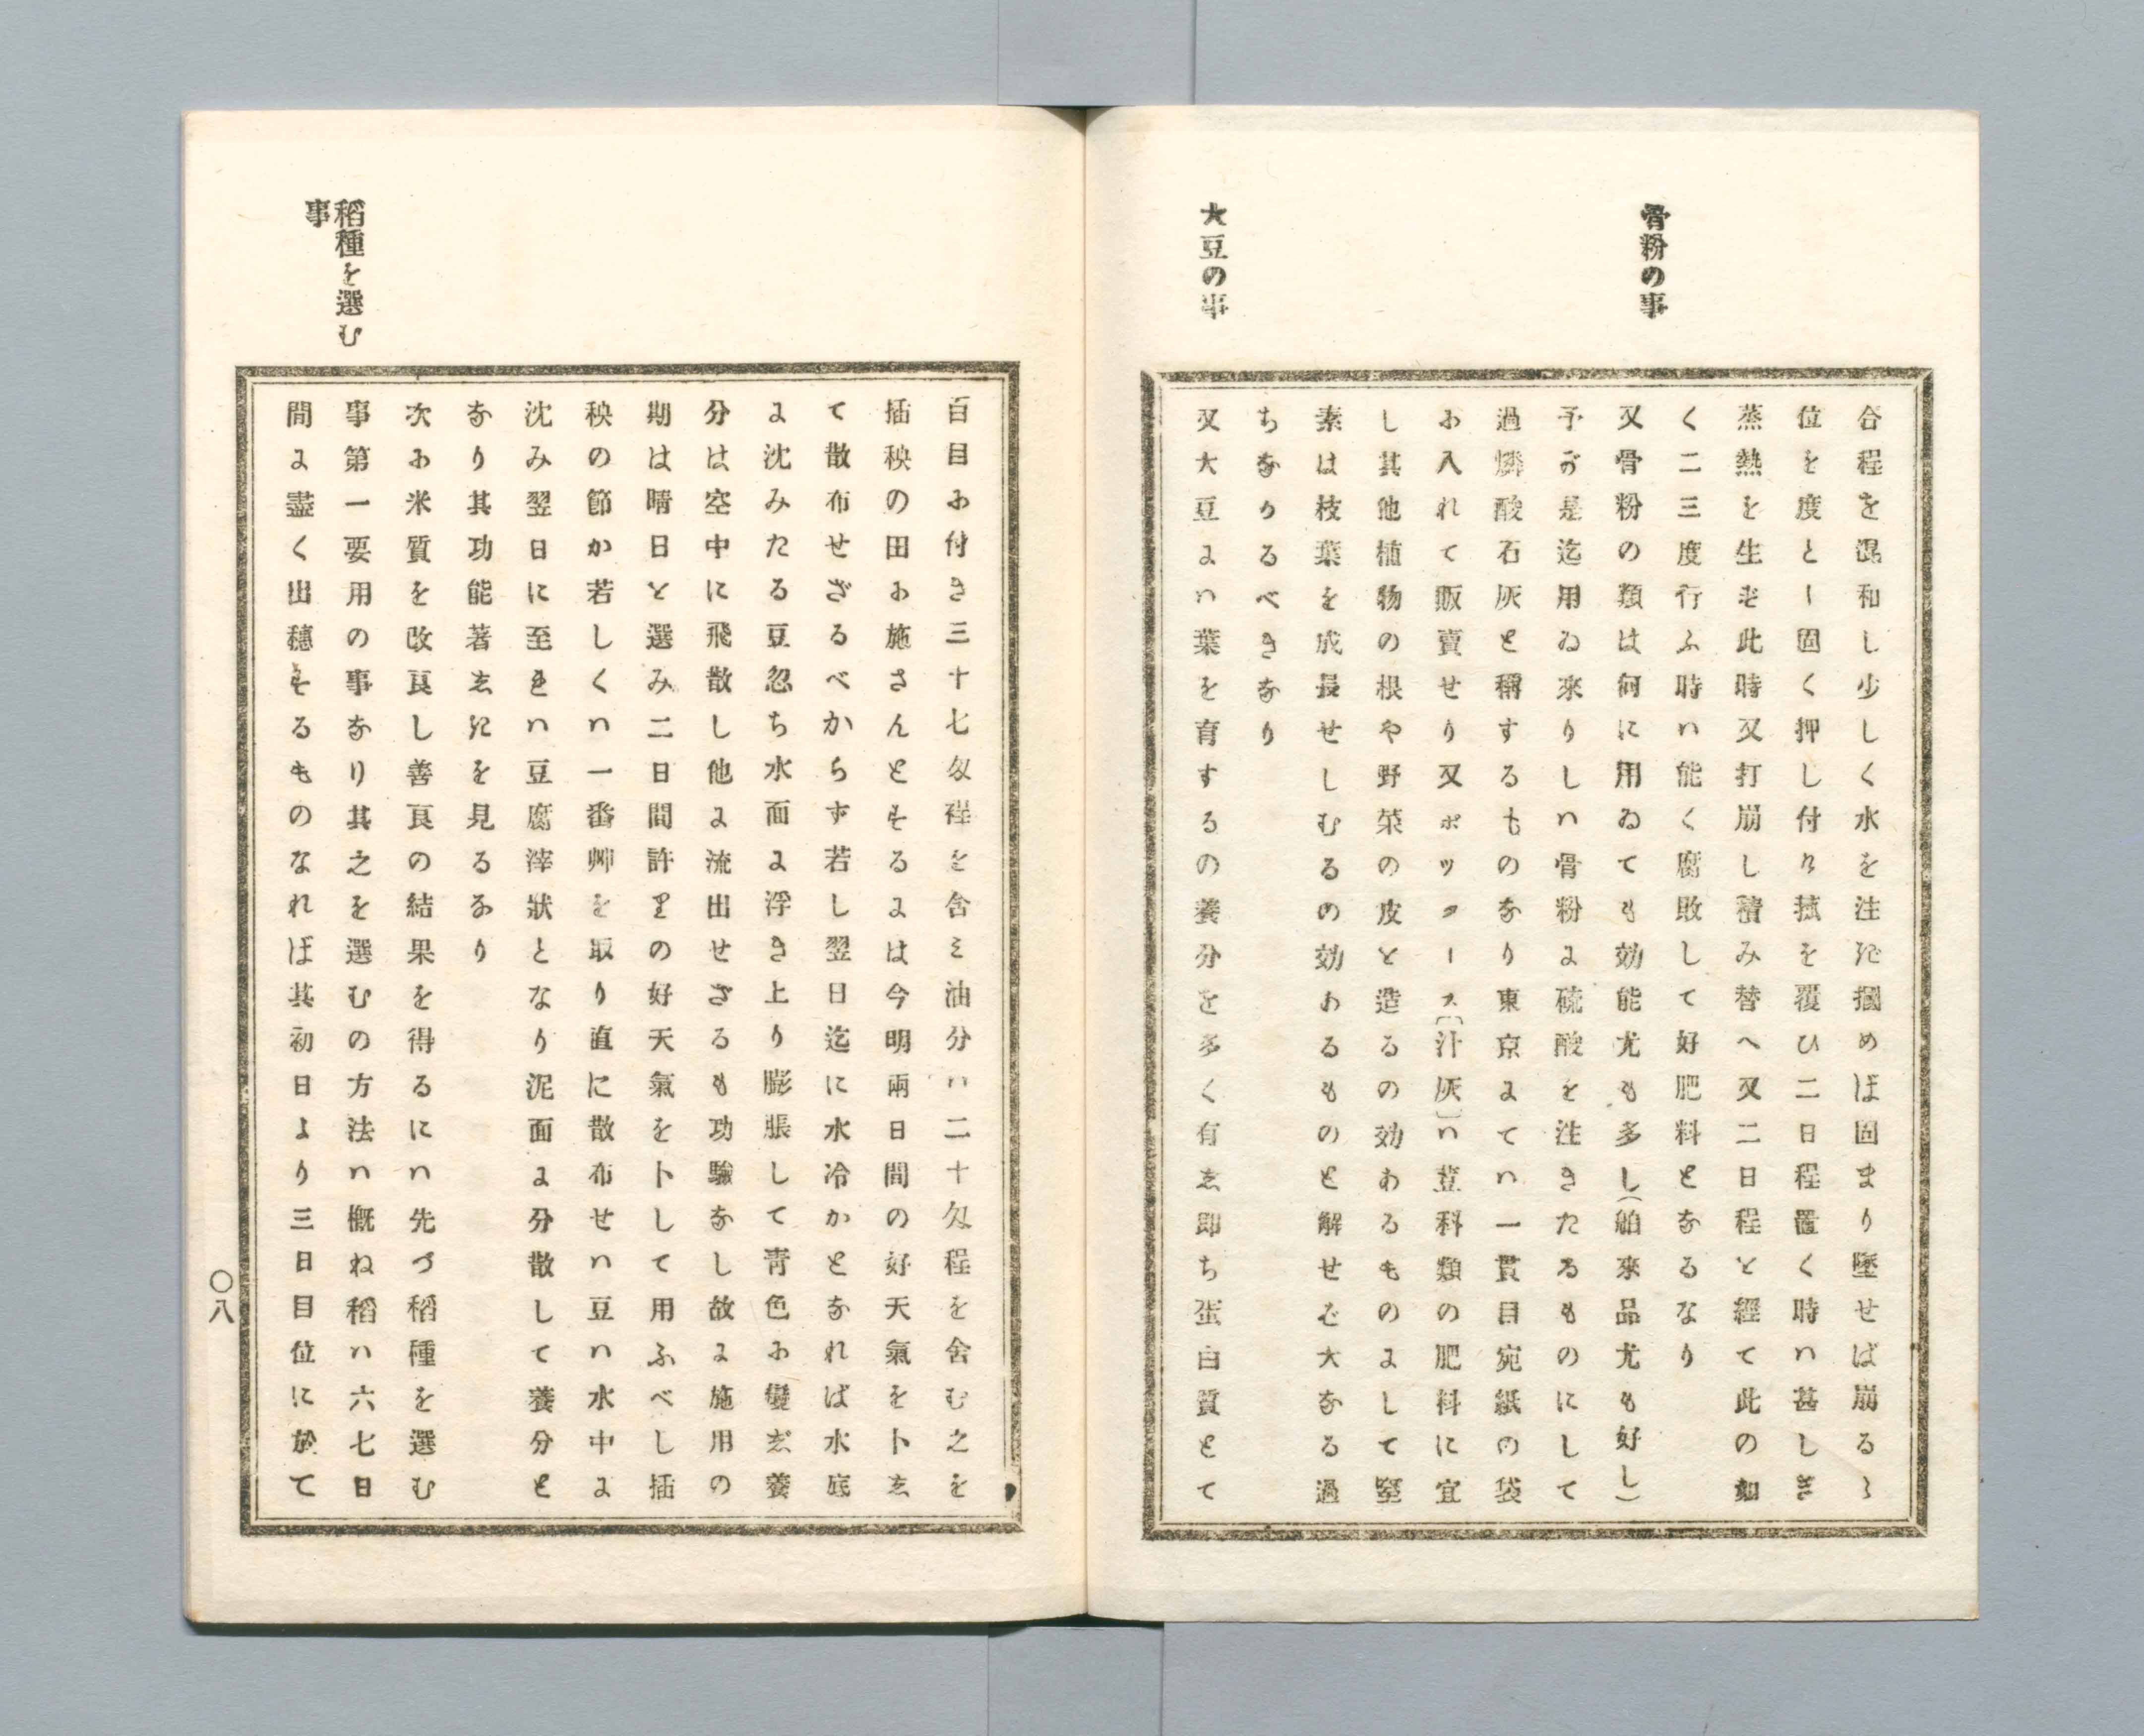 合程を混和し少しく水を注ぎ摑めば固まり墜せば崩るゝ
位を度とし固く押し付け莚を覆ひ二日程置く時ハ甚しき
蒸熱を生ず此時又打崩し積み替へ又二日程を經て此の如
く二三度行ふ時ハ能く腐敗して好肥料となるなり
骨粉の事
又骨粉の類は何に用ゐても効能尤も多し(舶來品尤も好し)
予が是迄用ゐ來りしハ骨粉に硫酸を注きたるものにして
過燐酸石灰と稱するものなり東京にてハ一貫目宛紙の袋
に入れて販賣せり又ポッタース(汁灰)ハ荳科類の肥料に宜
し其他植物の根や野菜の皮を造るの効あるものにして窒
素は枝葉を成長せしむるの効あるものと解せば大なる過
ちなりるべきなり
大豆の事
又大豆にハ葉を育するの養分を多く有し即ち蛋白質とて
百目に付き三十七匁程を含み油分ハ二十匁程を含む之を
插秧の田に施さんとするには今明兩日間の好天氣を卜し
て散布せざるべからず若し翌日迄に水冷かとなれば水底
に沈みたる豆忽ち水面に浮き上り膨脹して青色に變じ養
分は空中に飛散し他に流出せざるも功驗なし故に施用の
期は晴日を選み二日間許りの好天氣を卜して用ふべし插
秧の節か若しくハ一番艸を取り直に散布せハ豆ハ水中に
沈み翌日に至れハ豆腐滓狀となり泥面に分散して養分と
なり其功能著しきを見るなり
次に米質を改良し善良の結果を得るにハ先づ稻種を選む
稻種を選む
事
事第一要用の事なり其之を選むの方法ハ概ね稻ハ六七日
間に盡く出穗するものなれば其初日より三日目位に於て
〇八